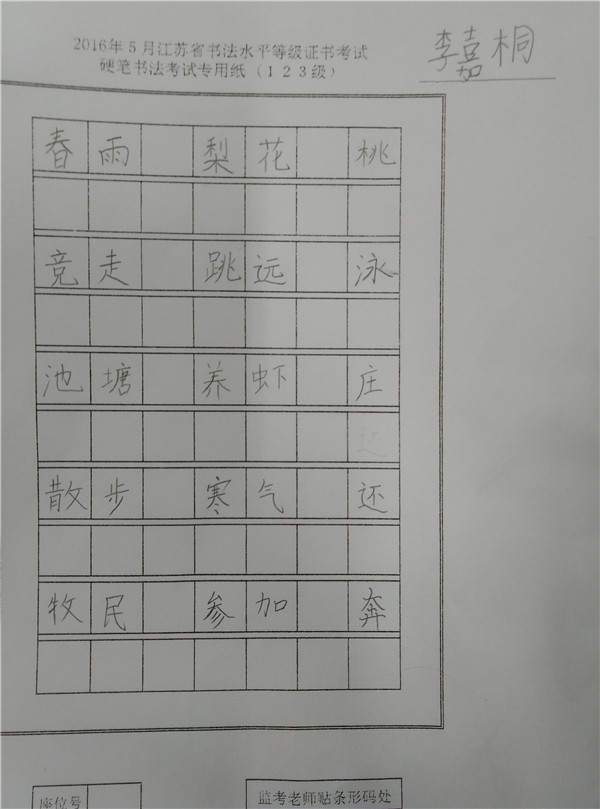 2016年5月江苏省书法水平等级证书考试
硬笔书法考试专用纸（123级）
李嘉桐
春雨 梨花 桃
竞走 跳远 泳
池塘 养虾 庄
散步 寒气 还
牧民 参加 奔
座位号
监考老师贴条形码处